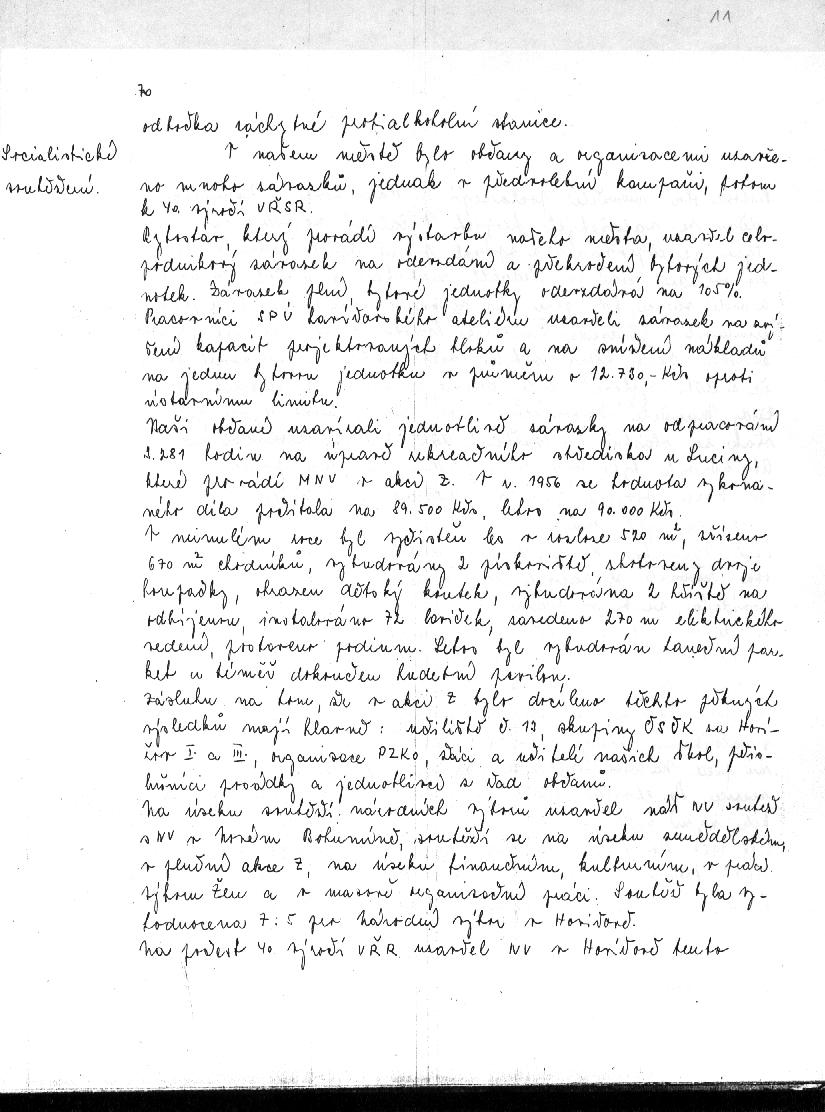 11
70
odbočka záchytné protialkoholní stanice.
Socialistické soutěžení.
V našem městě bylo občany a organisacemi uzavře-
no mnoho závazků, jednak v předvolební kampani, potom
k 40. výročí VŘSR.
Bytostav, který provádí výstavbu našeho města, uzavřel celo-
podnikový závazek na odevzdání a překročení bytových jed-
notek. Závazek plní, bytové jednotky odevzdává na 105%.
Pracovníci SPÚ havířovského ateliéru uzavřeli závazek na zvý-
šení kapacit projektovaných bloků a na snížení nákladů
na jednu bytovou jednotku v průměru o 12.730,- Kčs oproti
ústavnímu limitu.
Naši občané uzavírali jednotlivě závazky na odpracování
2.281 hodin na úpravě rekreačního střediska u Luciny,
které provádí MNV v akci Z. V r. 1956 se hodnota vykona-
ného díla počítala na 89.500 Kčs, letos na 90.000 Kčs.
V minulém roce byl vyčistěn les v rozloze 520 m², zřízeno
670 m² chodníků, vybudovány 2 pískoviště, zhotoveny dvoje
houpačky, ohrazen dětský koutek, vybudována 2 hřiště na
odbíjenou, instalováno 72 laviček, zavedeno 270 m elektrického
vedení, postaveno podium. Letos byl vybudován taneční par-
ket a téměř dokončen hudební pavilon.
Zásluhu na tom, že v akci Z bylo docíleno těchto pěkných
výsledků mají hlavně: učiliště č. 12, skupiny ČSČK na Haví-
řov I. a III., organisace PZKO, žáci a učitelé našich škol, přís-
lušníci posádky a jednotlivci z řad občanů.
Na úseku soutěží národních výborů uzavřel náš NV soutěž
s NV v Novém Bohumíně, soutěží se na úseku zemědělském,
v plnění akce Z, na úseku finančním, kulturním, v práci
Výboru žen a v masově organisační práci. Soutěž byla vy-
hodnocena 7:5 pro Národní výbor v Havířově.
Na počest 40 výročí VŘR uzavřel NV v Havířově tento